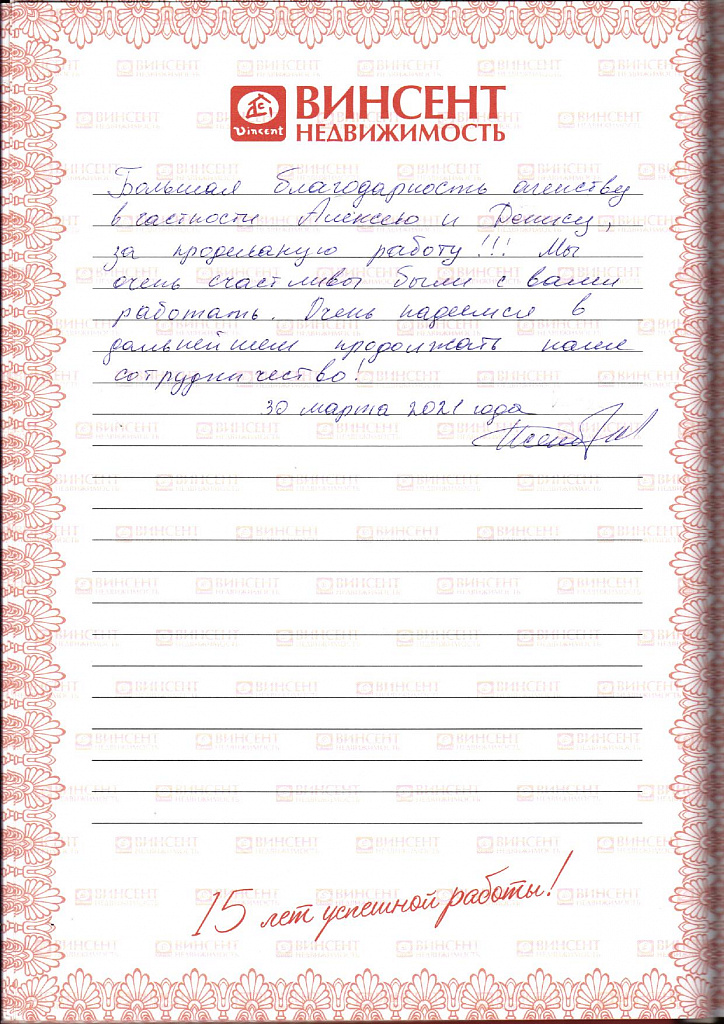 Vincent
ВИНСЕНТ
НЕДВИЖИМОСТЬ
Большая благодарность агенству
в частности Алексею и Денису,
за проделаную работу!!! Мы
очень счастливы были с вами
работать. Очень надеемся в
дальнейшем продолжать наше
сотрудничество!
30 марта 2021 года
15 лет успешной работы!